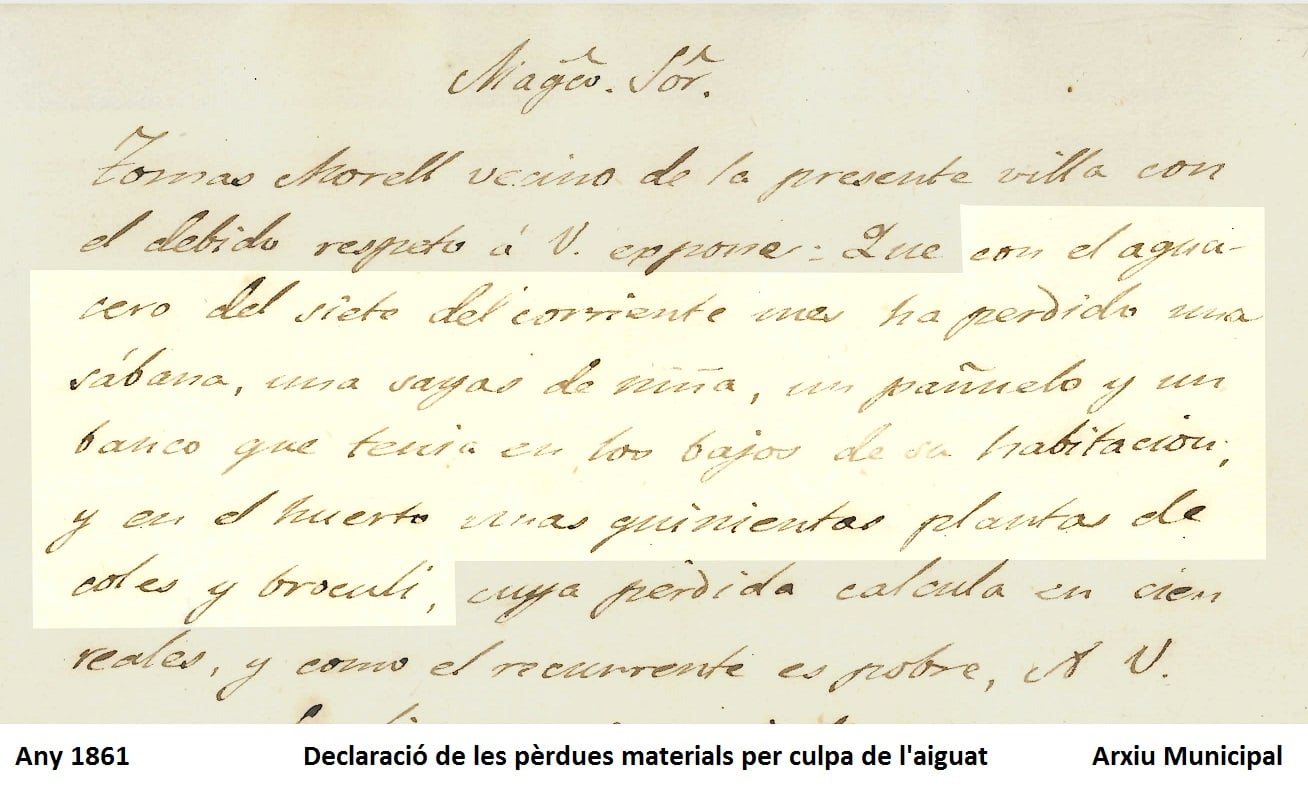 Magco. Sór.
Tomas Morell vecino de la presente villa con
el debido respeto á V. expone: Que con el agua-
cero del siete del corriente mes ha perdido una
sábana, una sayas de niña, un pañuelo y un
banco que tenia en los bajos de su habitación,
y en el huerto unas quinientas plantas de
coles y broculi, cuya pérdida calcula en cien
reales, y como el recurrente es pobre, A V.
Any 1861 Declaració de les pèrdues materials per culpa de l'aiguat Arxiu Municipal